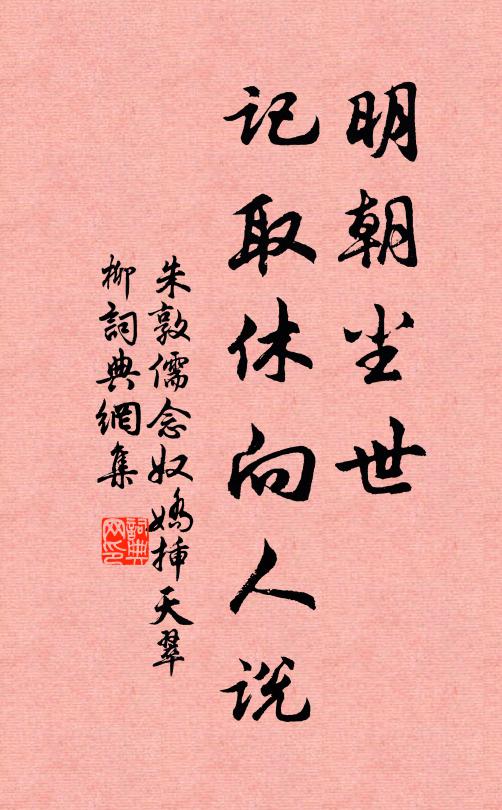 明朝尘世
记取休向人说
朱敦儒念奴娇插天翠
柳詞典網集
詞典网印